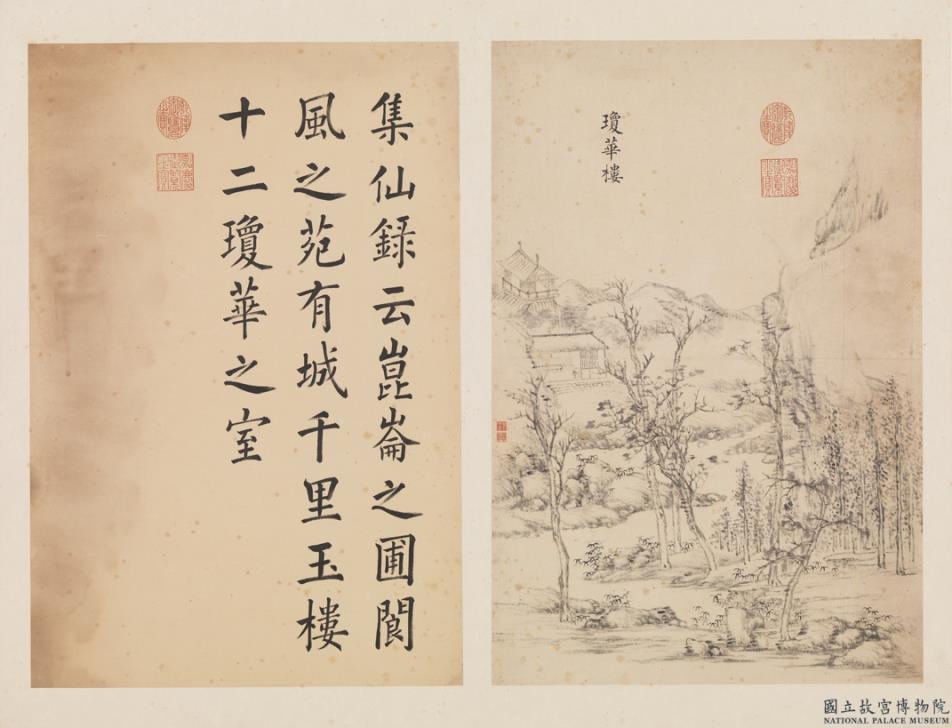 集仙錄云崑崙之圃閬
風之苑有城千里玉樓
十二瓊華之室
瓊華樓
國立故宮博物院
NATIONAL PALACE MUSEUM